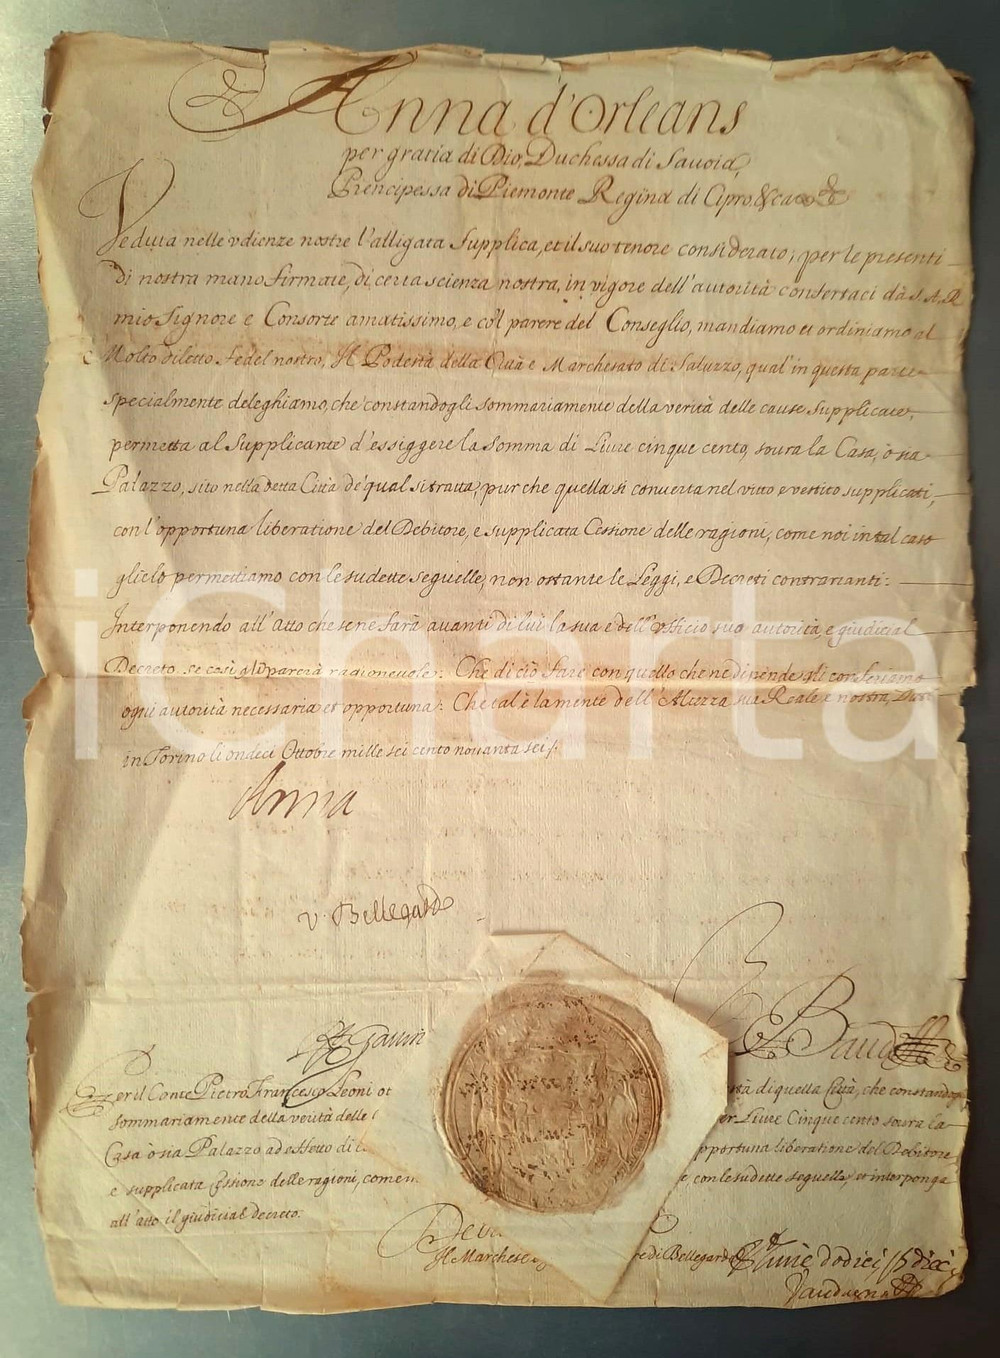 Anna d'Orleans
per gratia di Dio, Duchessa di Savoia,
Prencipessa di Piemonte Regina di Cipro, &ca
Veduta nelle udienze nostre l'alligata Supplica, et il suo tenore considerato; per le presenti
di nostra mano firmate, di certa scienza nostra, in vigore dell'autorità confertaci da S.A.R
mio Signore e Consorte amatissimo, e col parere del Conseglio, mandiamo et ordiniamo al
Molto diletto fedel nostro, Il Podestà della Città e Marchesato di Saluzzo, qual'in questa parte
specialmente deleghiamo, che constandogli sommariamente della verità delle cause supplicate,
permetta al supplicante d'essiggere la somma di Livre cinque cento, soura la Casa, ò sia
Palazzo, sito nella detta Città de qual si tratta, pur che quella si converta nel vitto e vestito supplicati,
con l'opportuna liberatione del Debitore, e supplicata Cessione delle ragioni, come noi in tal caso
glielo permettiamo con le sudette seguelle, non ostante le Leggi, e Decreti contrarianti:
Interponendo all'Atto che se ne farà avanti di lui la sua e dell'officio suo autorità, e giudicial
Decreto se così gli parerà ragionevole: Che di ciò fare con quello che ne dipende gli conferiamo
ogni autorità necessaria et opportuna: Che tal è la mente dell'Altezza sua Reale e nostra, Datt
in Torino li ondeci Ottobre mille sei cento novanta sei
Anna
v. Bellegarde
iCharta
Per il Conte Pietro Francesco Leoni
sommariamente della verità delle
Casa ò sia Palazzo ad effetto di
e supplicata Cessione delle ragioni, come
all'atto il giudicial decreto.
di quella Città, che constandogli
Livre Cinque cento soura la
opportuna liberatione del Debitore
e, con le sudette seguelle et interponga
Il Marchese
di Bellegarde
Livre dodeci